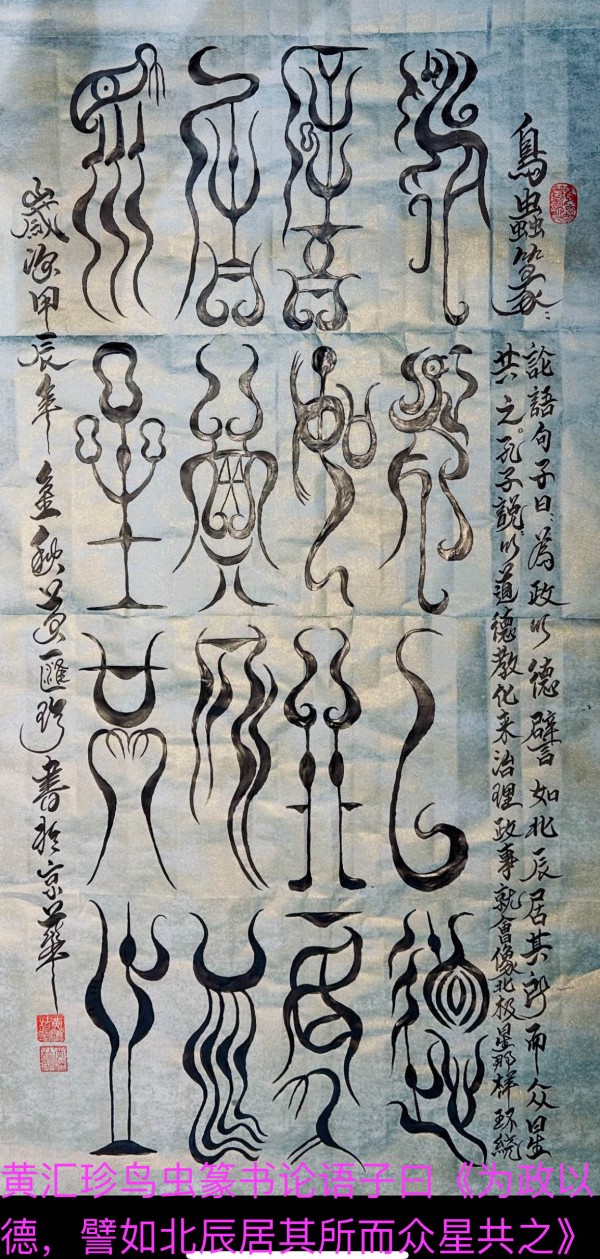 鳥蟲篆：
論語句子曰：為政以德譬如北辰居其所而众星
共之。孔子說：以道德教化来治理政事就會像北极星那樣环绕
為政以德
譬如北辰
居其所而
眾星共之
歲次甲辰年金秋黃匯珍書於京華
黄汇珍鸟虫篆书论语子曰《为政以
德，譬如北辰居其所而众星共之》